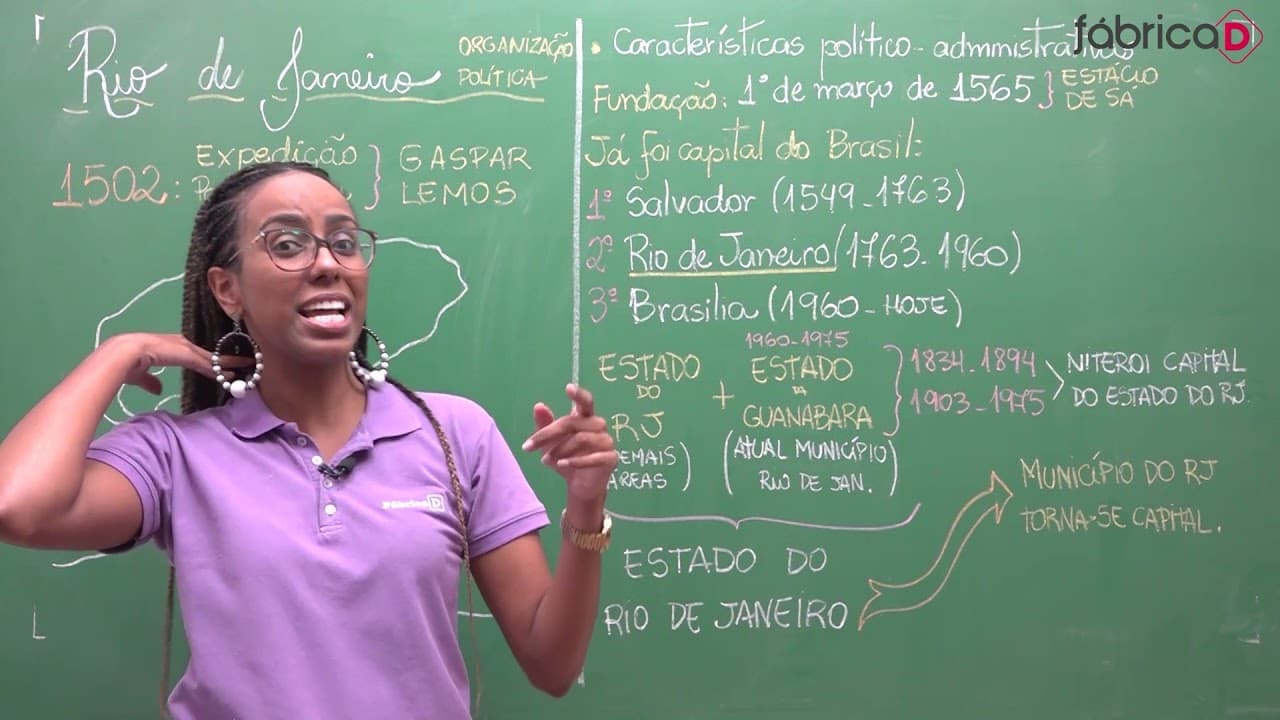 Rio de Janeiro
ORGANIZAÇÃO
POLÍTICA
1502: Expedição } GASPAR
LEMOS
fábricaD
• Características político-administrativas
Fundação: 1º de março de 1565} ESTÁCIO
DE SÁ
Já foi capital do Brasil:
1º Salvador (1549-1763)
2º Rio de Janeiro (1763-1960)
3º Brasilia (1960-HOJE)
1960-1975
ESTADO DO RJ + ESTADO DA GUANABARA
(ATUAL MUNICÍPIO
RIO DE JAN.)
ÁREAS)
1834-1894
1903-1975
NITEROI CAPITAL
DO ESTADO DO RJ.
MUNICÍPIO DO RJ
TORNA-SE CAPITAL.
ESTADO DO
RIO DE JANEIRO